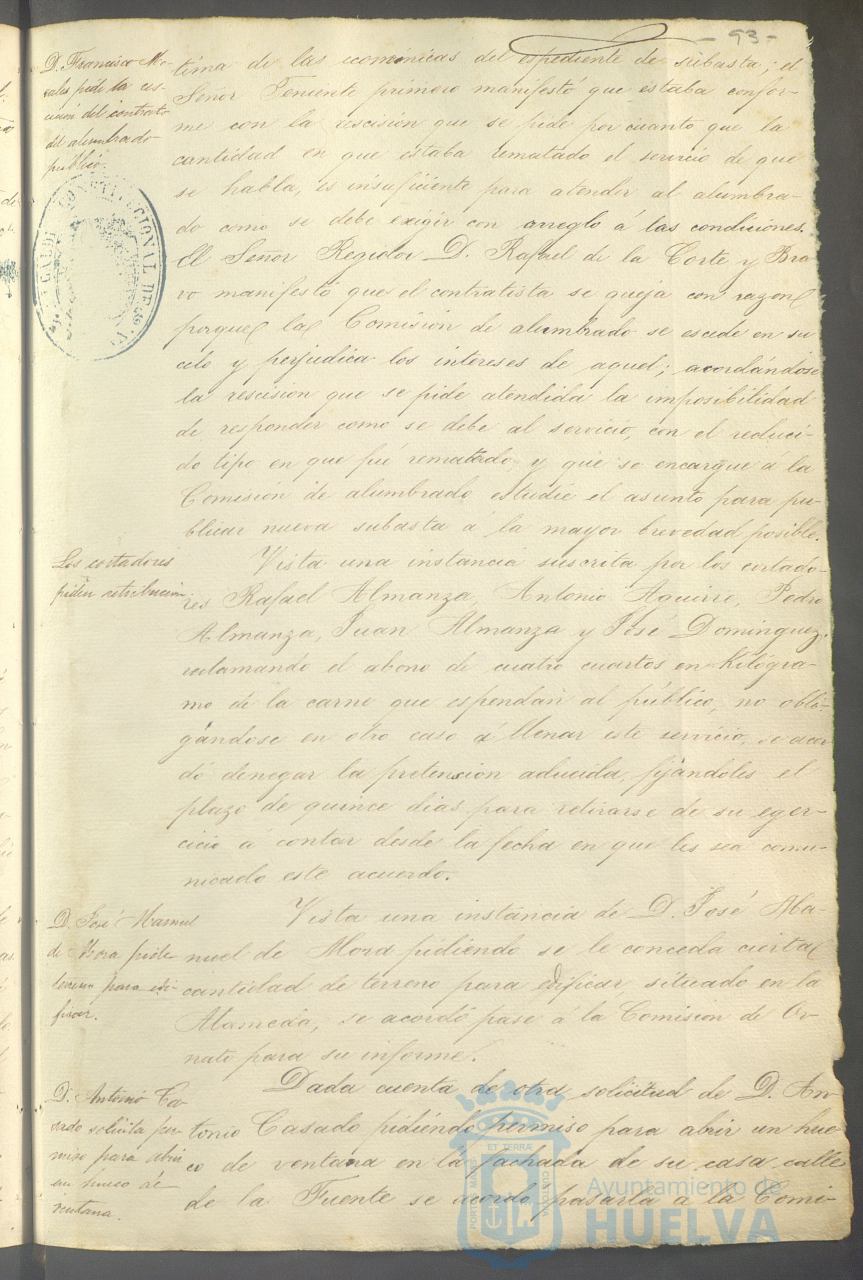 - 93 -
D. Francisco Mo-
rales pide la res-
cisión del contrato
del alumbrado
público.
tima de las económicas del espediente de subasta; el
Señor Teniente primero manifestó que estaba confor-
me con la rescisión que se pide por cuanto que la
cantidad en que estaba rematado el servicio de que
se habla, es insuficiente para atender al alumbra-
do como se debe exigir con arreglo á las condiciones.
El Señor Regidor D. Rafael de la Corte y Bra-
vo manifestó que el contratista se queja con razon
porque la Comisión de alumbrado se escede en su
celo y perjudica los intereses de aquel; acordándose
la rescision que se pide atendida la imposibilidad
de responder como se debe al servicio, con el reduci-
do tipo en que fué rematado, y que se encargue á la
Comisión de alumbrado estudie el asunto para pu-
blicar nueva subasta á la mayor brevedad posible.
CONSTITUCIONAL DE
Los cortadores
piden retribucion.
Vista una instancia suscrita por los cortado-
res Rafael Almanza, Antonio Aguirre, Pedro
Almanza, Juan Almanza y José Dominguez,
reclamando el abono de cuatro cuartos en Kilógra-
mo de la carne que espendan al público, no obli-
gándose en otro caso á llenar este servicio, se acor-
dó denegar la pretension aducida, fijándoles el
plazo de quince dias para retirarse de su eger-
cicio á contar desde la fecha en que les sea comu-
nicado este acuerdo.
D. José Manuel
de Mora pide
terreno para edi-
ficar.
Vista una instancia de D. José Ma-
nuel de Mora pidiendo se le conceda cierta
cantidad de terreno para edificar, situado en la
Alameda, se acordó pase á la Comision de Or-
nato para su informe.
D. Antonio Ca-
sado solicita per-
miso para abrir
un hueco de
ventana.
Dada cuenta de otra solicitud de D. An-
tonio Casado pidiendo permiso para abrir un hue-
co de ventana en la fachada de su casa calle
de la Fuente se acordó pasarla á la Comi-
Ayuntamiento de
HUELVA